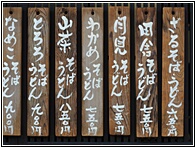 ざるそば・うどん 六五〇円
田舎 そば うどん 七五〇円
月見 そば うどん 七五〇円
わかめ そば うどん 七五〇円
山菜 そば うどん 八五〇円
とろろ そば うどん 九〇〇円
なめこ そば うどん 九〇〇円